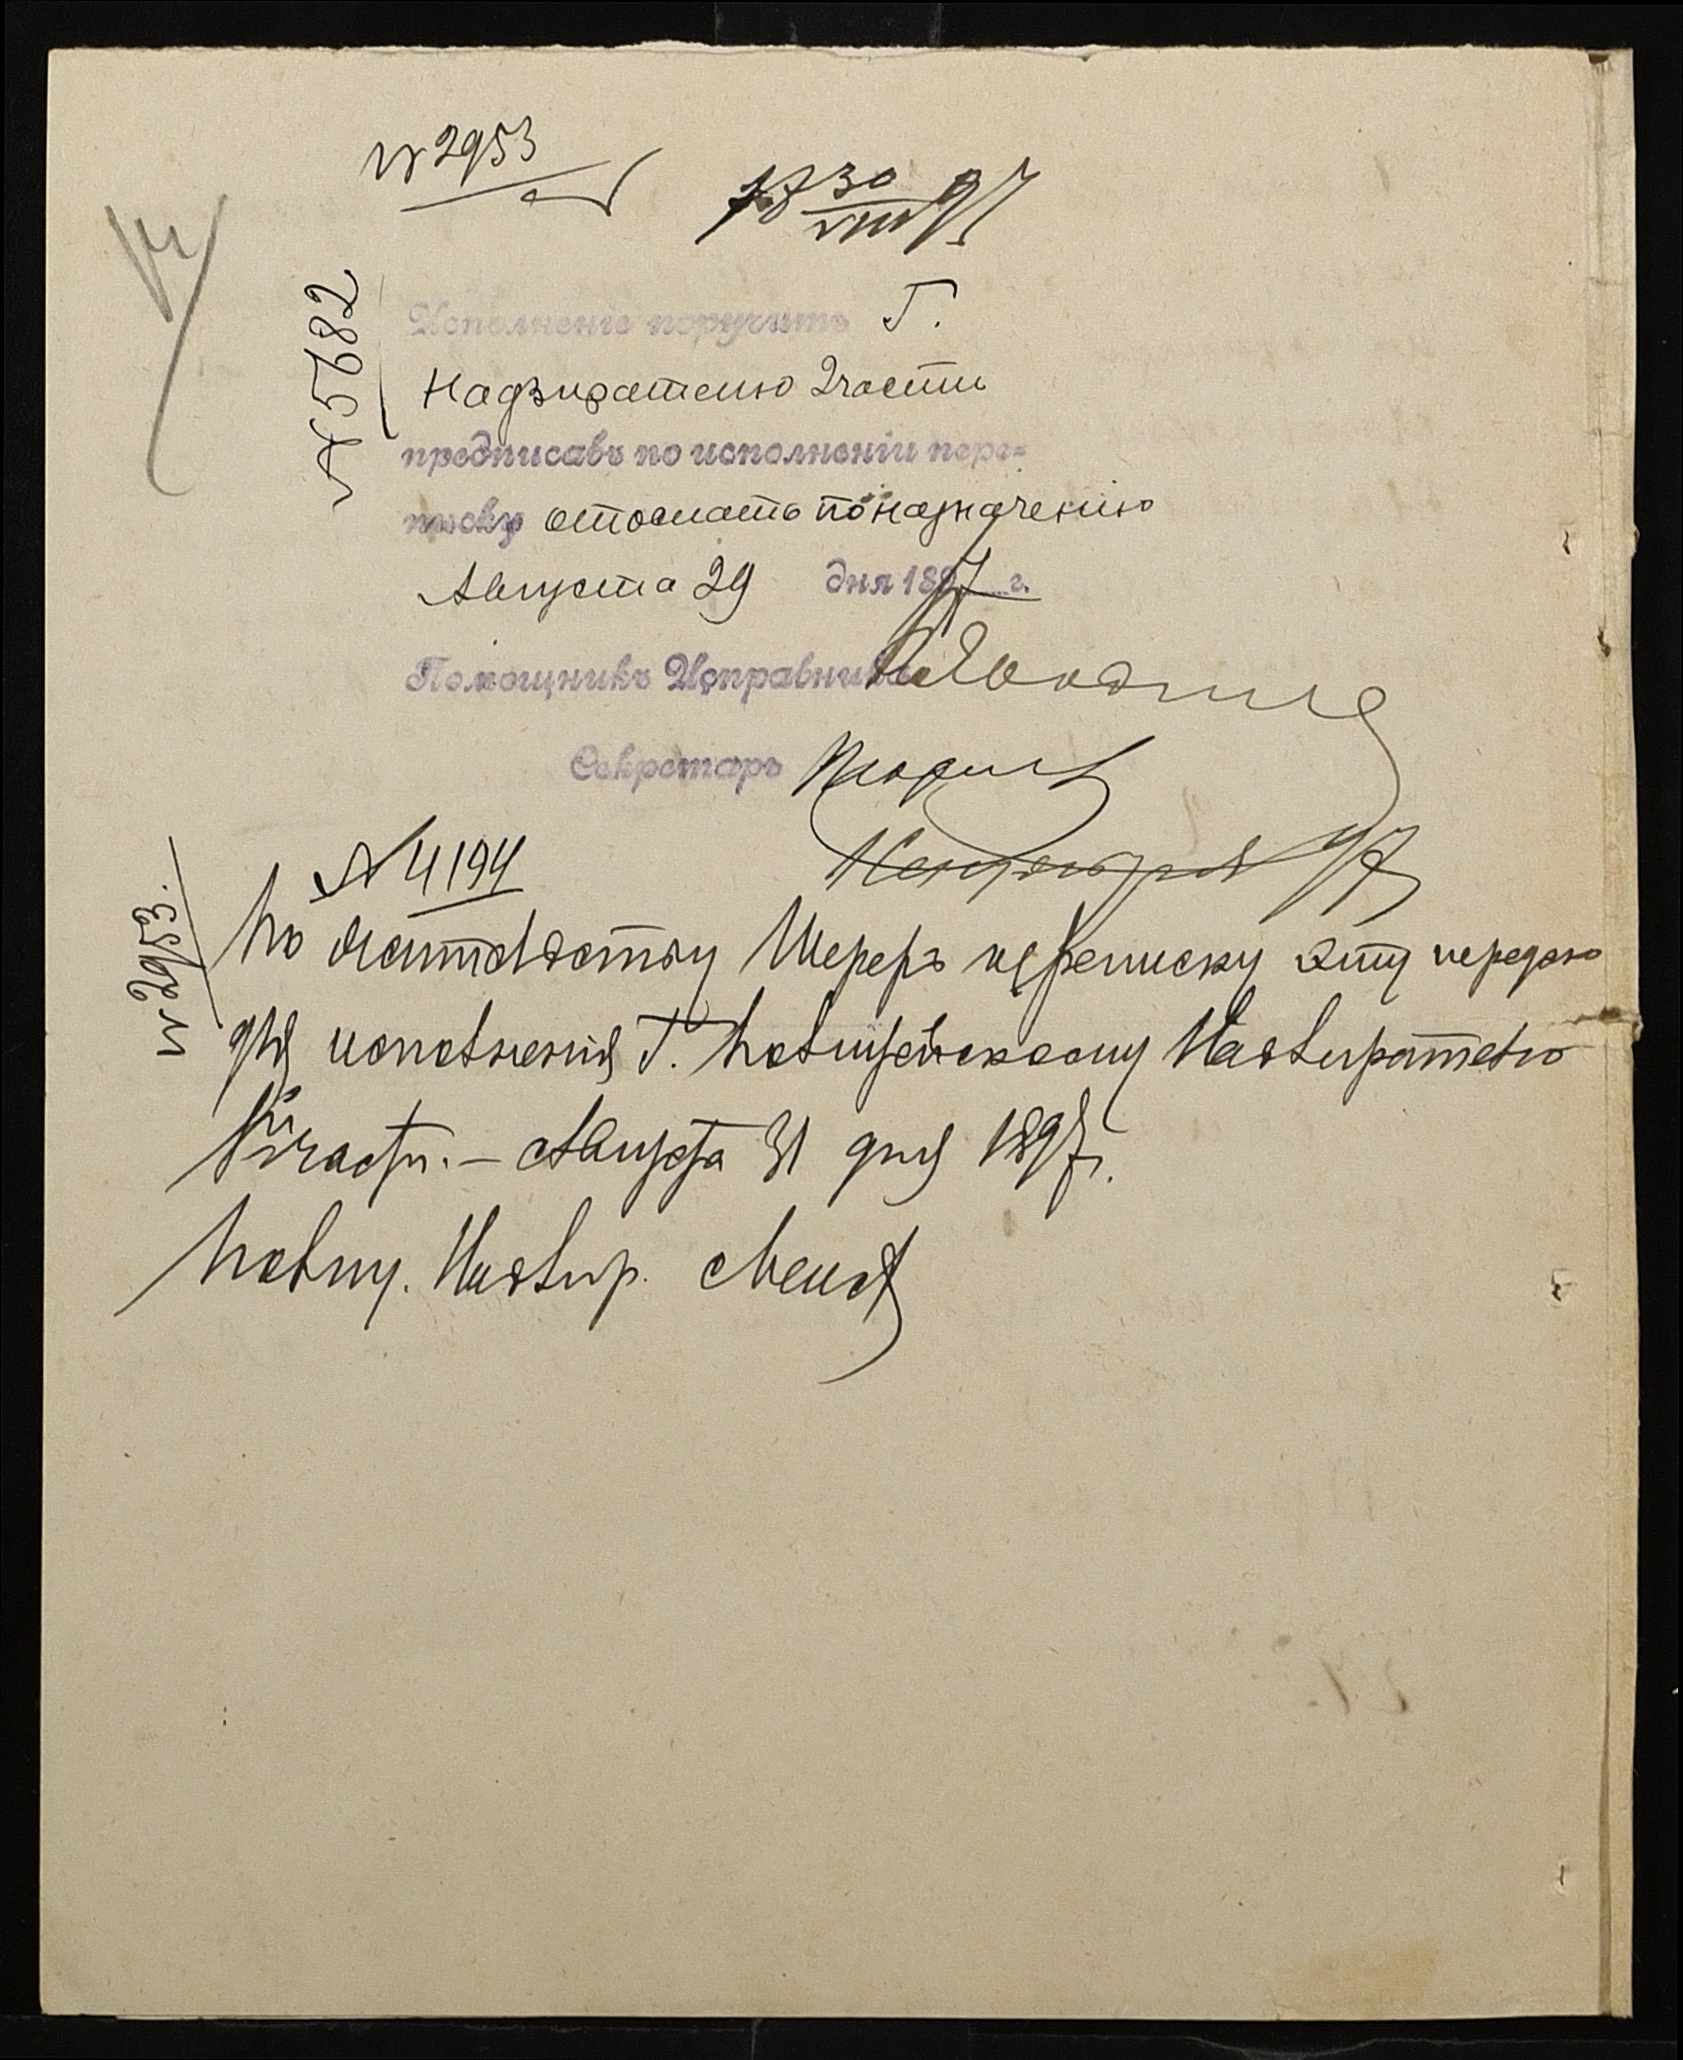 № 2953
18 30/VIII 97
№ 5682
Исполненіе поручить Г.
Надзирателю 2 части
предписавъ по исполненіи пере-
писку отослать по назначенію
Августа 29 дня 1897 г.
Помощникъ Исправника
Секретарь
№ 4194
№ 2953.
По жительству Шереръ переписку эту передаю
для исполненія Г. Полицейскому Надзирателю
части. – Августа 31 дня 1897 г.
Полиц. Надзир.